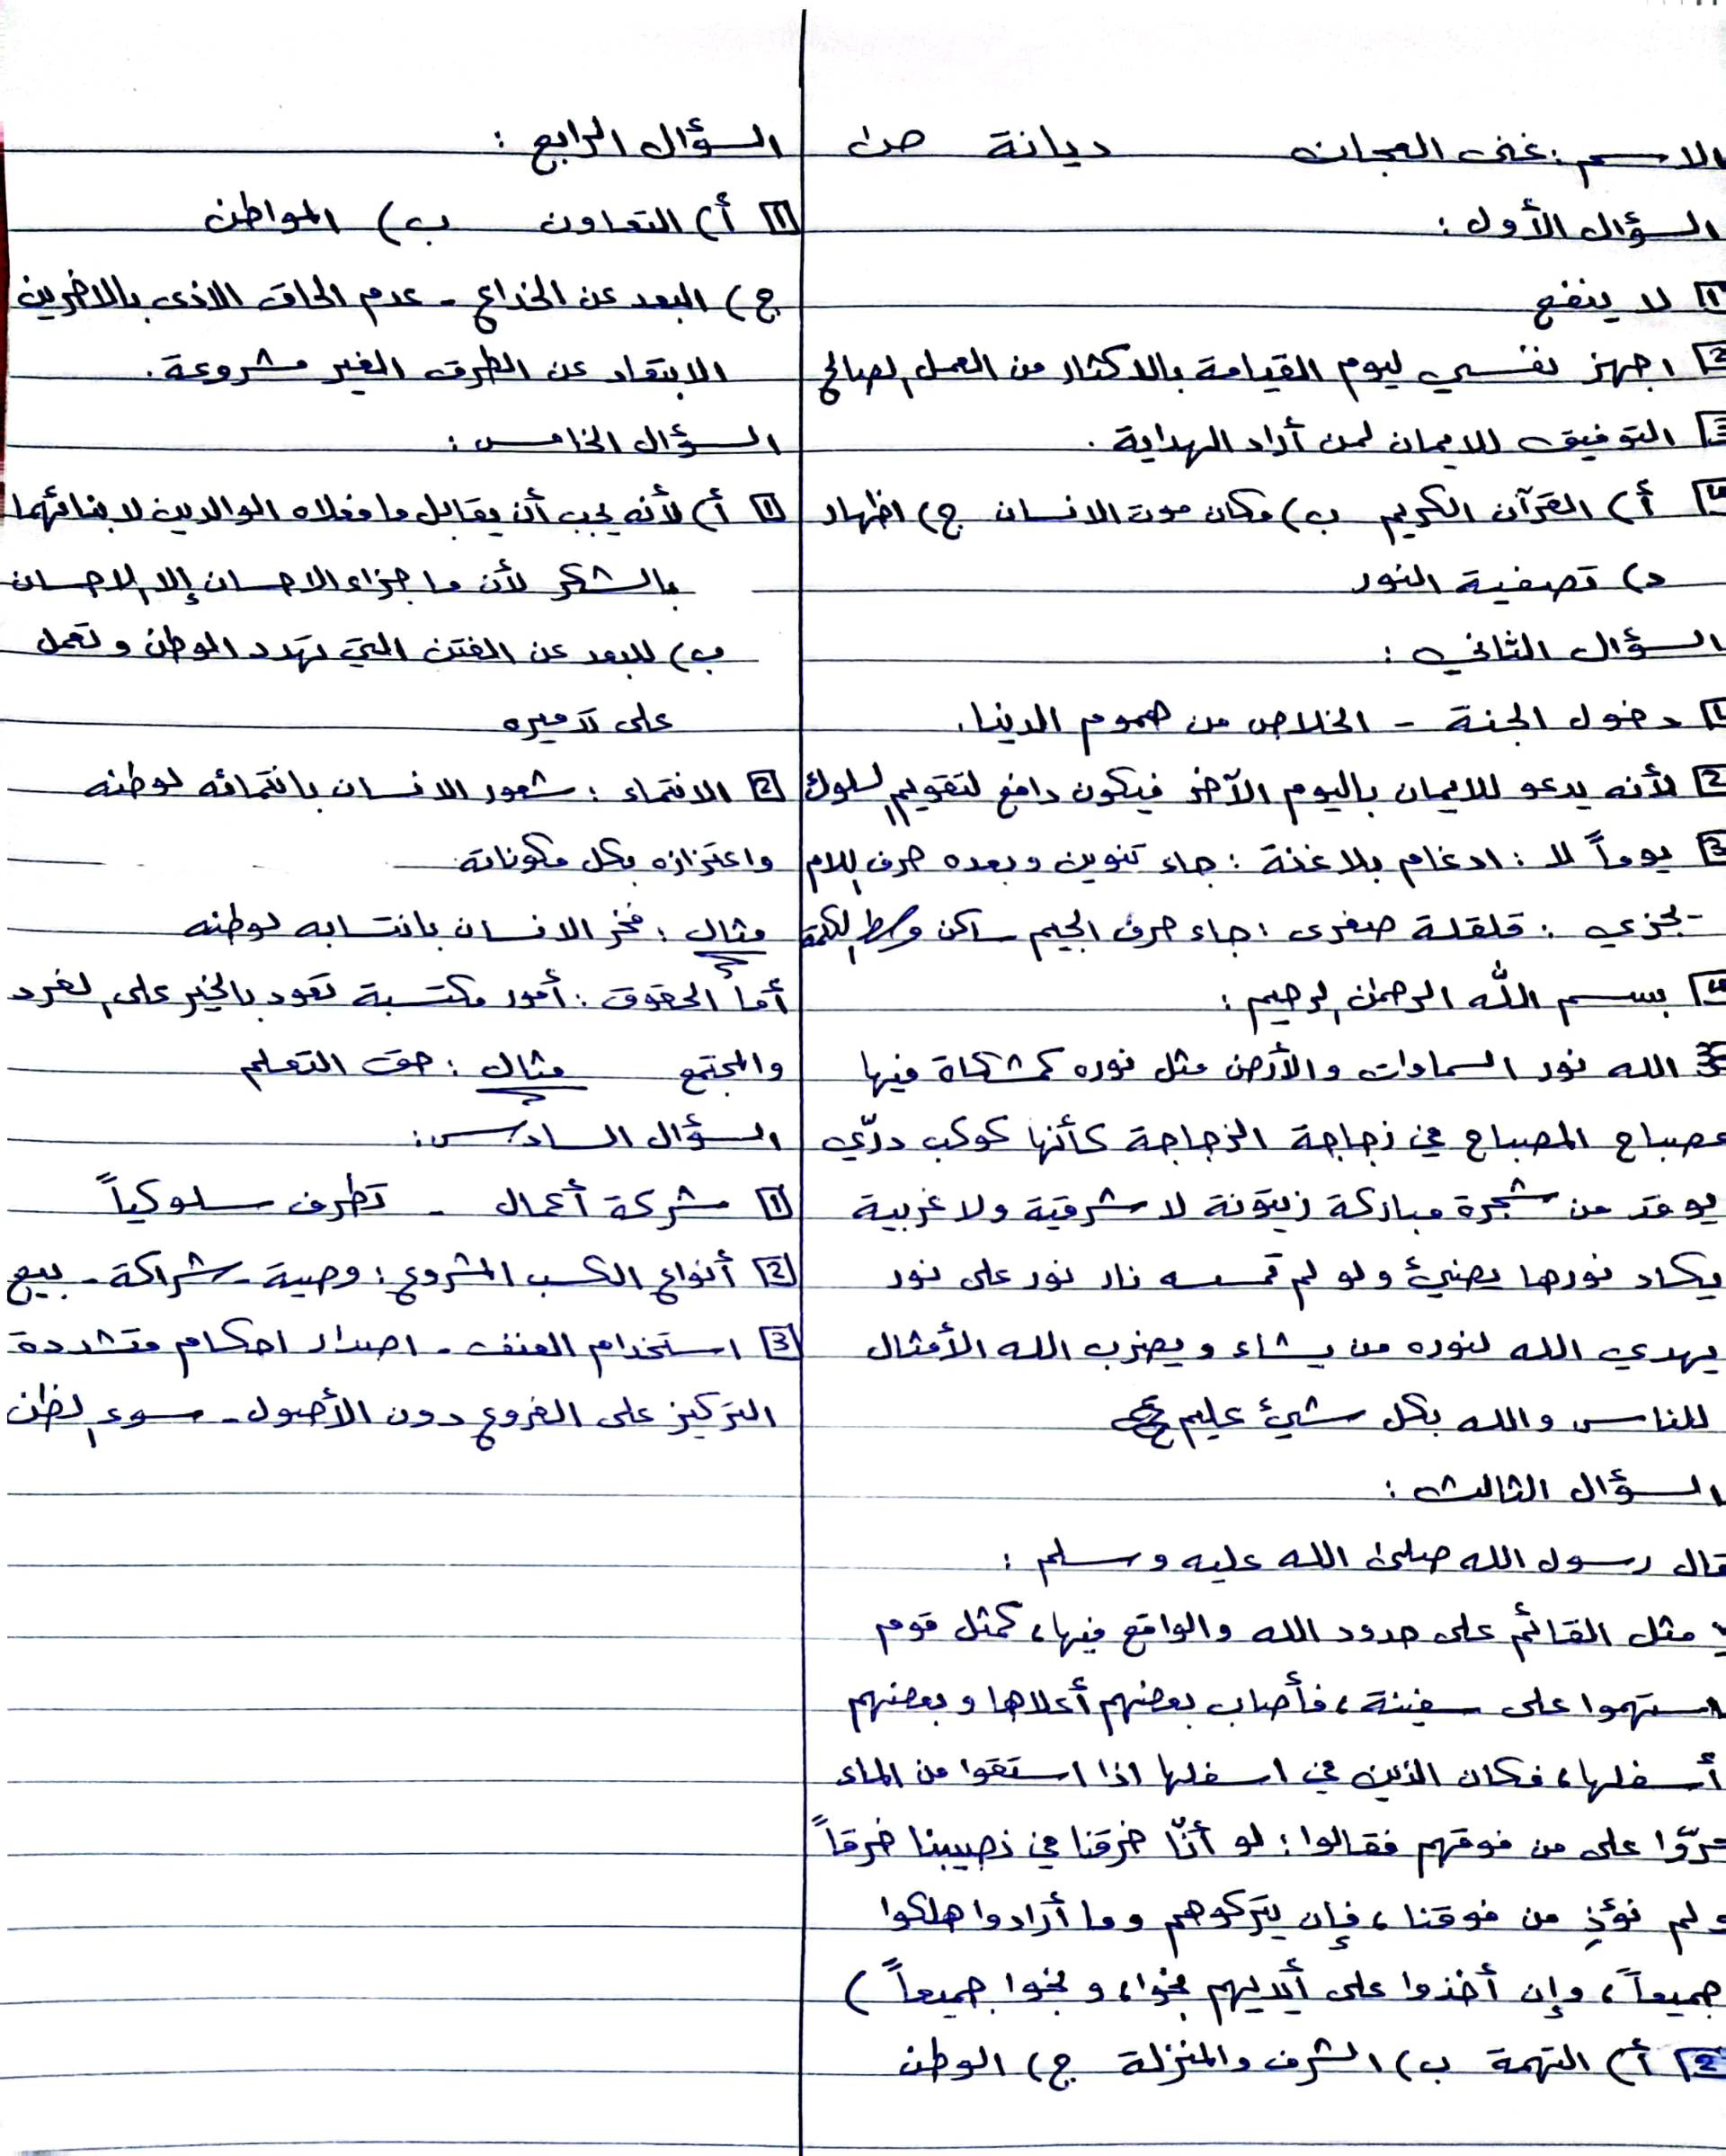 الاسم : غنى العجان ديانة ص١
السؤال الأول :
1 لا ينفع
2 اجهز نفسي ليوم القيامة بالاكثار من العمل الصالح
3 التوفيق للايمان لمن أراد الهداية .
4 أ) القرآن الكريم ب) مكان موت الانسان ج) اظهار
د) تصفية النور
السؤال الثاني :
1 دخول الجنة - الخلاص من هموم الدنيا.
2 لأنه يدعو للايمان باليوم الآخر فيكون دافع لتقويم السلوك
3 يوماً لا : ادغام بلا غنة : جاء تنوين وبعده حرف اللام
- يجزي : قلقلة صغرى : جاء حرف الجيم ساكن وسط الكلمة
4 بسم الله الرحمن الرحيم :
الله نور السماوات والأرض مثل نوره كمشكاة فيها
مصباح المصباح في زجاجة الزجاجة كأنها كوكب درّي
يوقد من شجرة مباركة زيتونة لا شرقية ولا غربية
يكاد نورها يضيئ ولو لم تمسسه نار نور على نور
يهدي الله لنوره من يشاء ويضرب الله الأمثال
للناس والله بكل شيئ عليم
السؤال الثالث :
قال رسول الله صلى الله عليه وسلم :
مثل القائم على حدود الله والواقع فيها، كمثل قوم
استهموا على سفينة، فأصاب بعضهم أعلاها وبعضهم
أسفلها، فكان الذين في اسفلها اذا استقوا من الماء
مرّوا على من فوقهم فقالوا : لو أنّا خرقنا في نصيبنا خرقاً
ولم نؤذِ من فوقنا، فإن يتركوهم وما أرادوا هلكوا
جميعاً، وإن أخذوا على أيديهم نجوا، ونجوا جميعاً )
2 أ) التهمة ب) الشرف والمنزلة ج) الوطن
السؤال الرابع :
1 أ) التعاون ب) المواطن
ج) البعد عن الخداع - عدم الحاق الاذى بالاخرين
الابتعاد عن الطرق الغير مشروعة.
السؤال الخامس :
1 أ) لأنه يجب أن يقابل ما فعلاه الوالدين لابنائهما
بالشكر لأن ما جزاء الاحسان إلا الاحسان
ب) للبعد عن الفتن التي تهدد الوطن وتعمل
على تدميره
2 الانتماء : شعور الانسان بانتمائه لوطنه
واعتزازه بكل مكوناته
مثال : فخر الانسان بانتسابه لوطنه
أما الحقوق : أمور مكتسبة تعود بالخير على الفرد
والمجتمع مثال : حق التعلم
السؤال السادس :
1 شركة أعمال - تطرف سلوكياً
2 أنواع الكسب المشروع : وصية - شراكة - بيع
3 استخدام العنف - اصدار احكام متشددة
التركيز على الفروع دون الأصول - سوء الظن